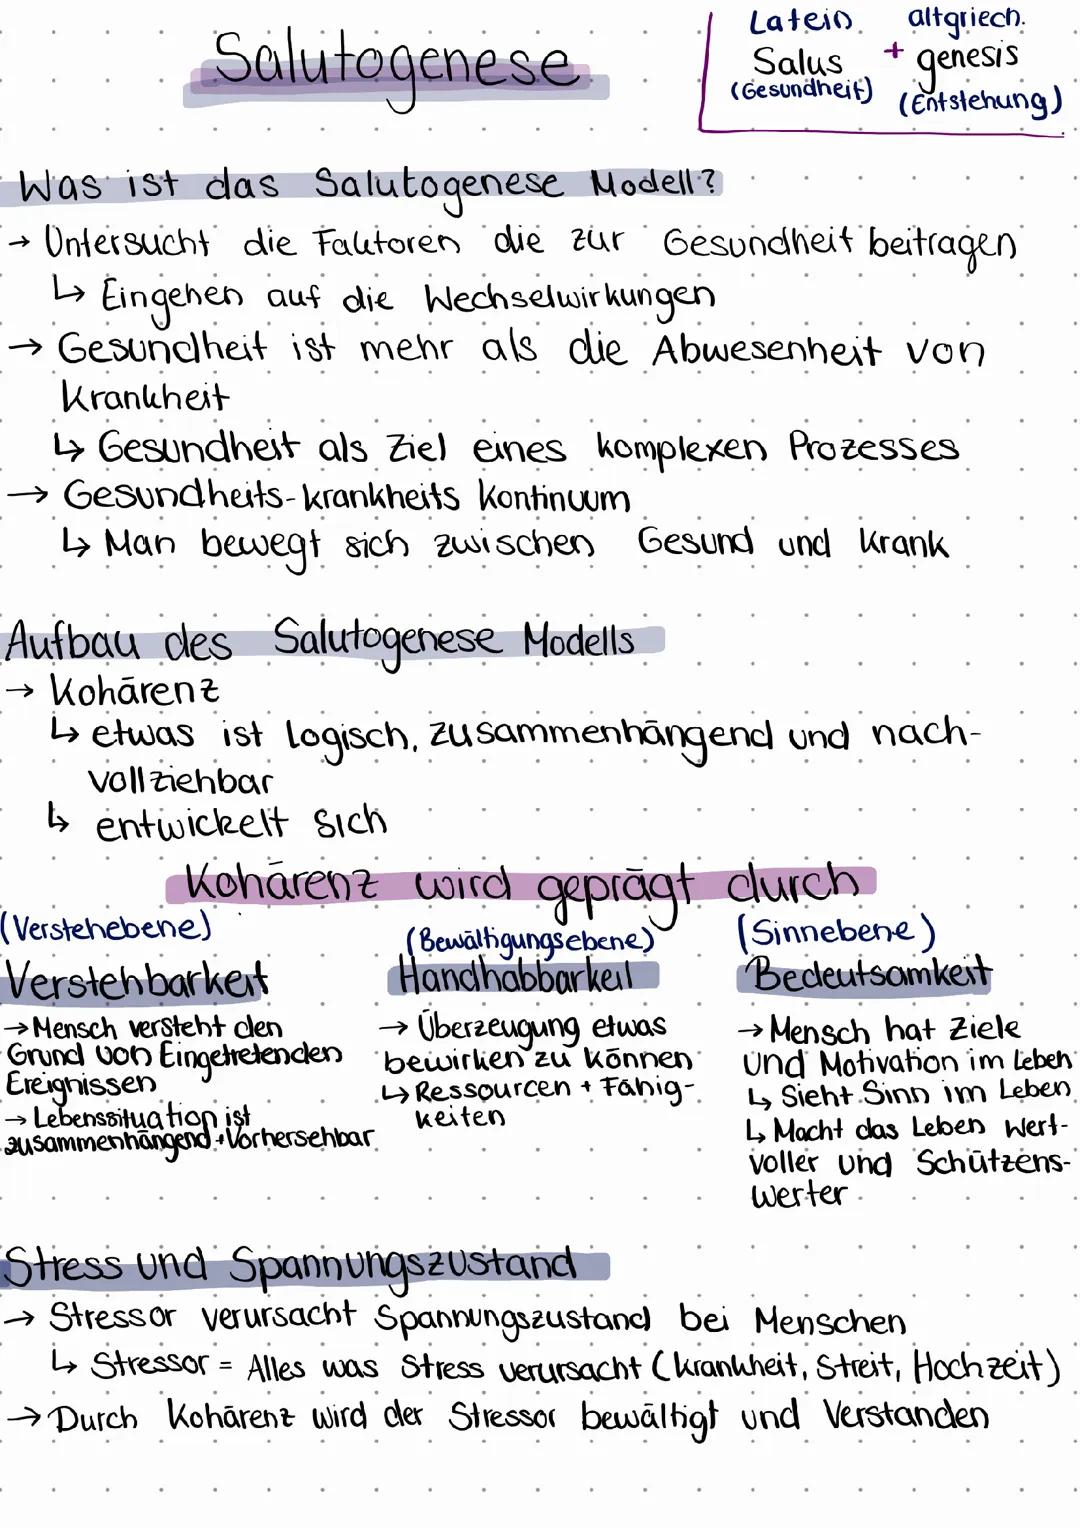 Salutogenese
Latein altgriech.
Salus + genesis
(Gesundheit) (Entstehung)
Was ist das Salutogenese Modell?
→ Untersucht die Faktoren die zur Gesundheit beitragen
↳ Eingehen auf die Wechselwirkungen
→ Gesundheit ist mehr als die Abwesenheit von
Krankheit
↳ Gesundheit als Ziel eines komplexen Prozesses
→ Gesundheits-krankheits Kontinuum
↳ Man bewegt sich zwischen Gesund und Krank
Aufbau des Salutogenese Modells
→ Kohärenz
↳ etwas ist Logisch, zusammenhängend und nach-
vollziehbar
↳ entwickelt sich
Kohärenz wird geprägt durch
(Verstehebene)
Verstehbarkeit
→ Mensch versteht den
Grund von Eingetretenden
Ereignissen
→ Lebenssituation ist
zusammenhängend + Vorhersehbar
(Bewältigungsebene)
Handhabbarkeit
→ Überzeugung etwas
bewirken zu können
↳ Ressourcen + Fähig-
keiten
(Sinnebene)
Bedeutsamkeit
→ Mensch hat Ziele
und Motivation im Leben
↳ Sieht Sinn im Leben
↳ Macht das Leben Wert-
voller und Schützens-
werter
Stress und Spannungszustand
→ Stressor verursacht Spannungszustand bei Menschen
↳ Stressor = Alles was Stress verursacht (Krankheit, Streit, Hochzeit)
→ Durch Kohärenz wird der Stressor bewältigt und Verstanden